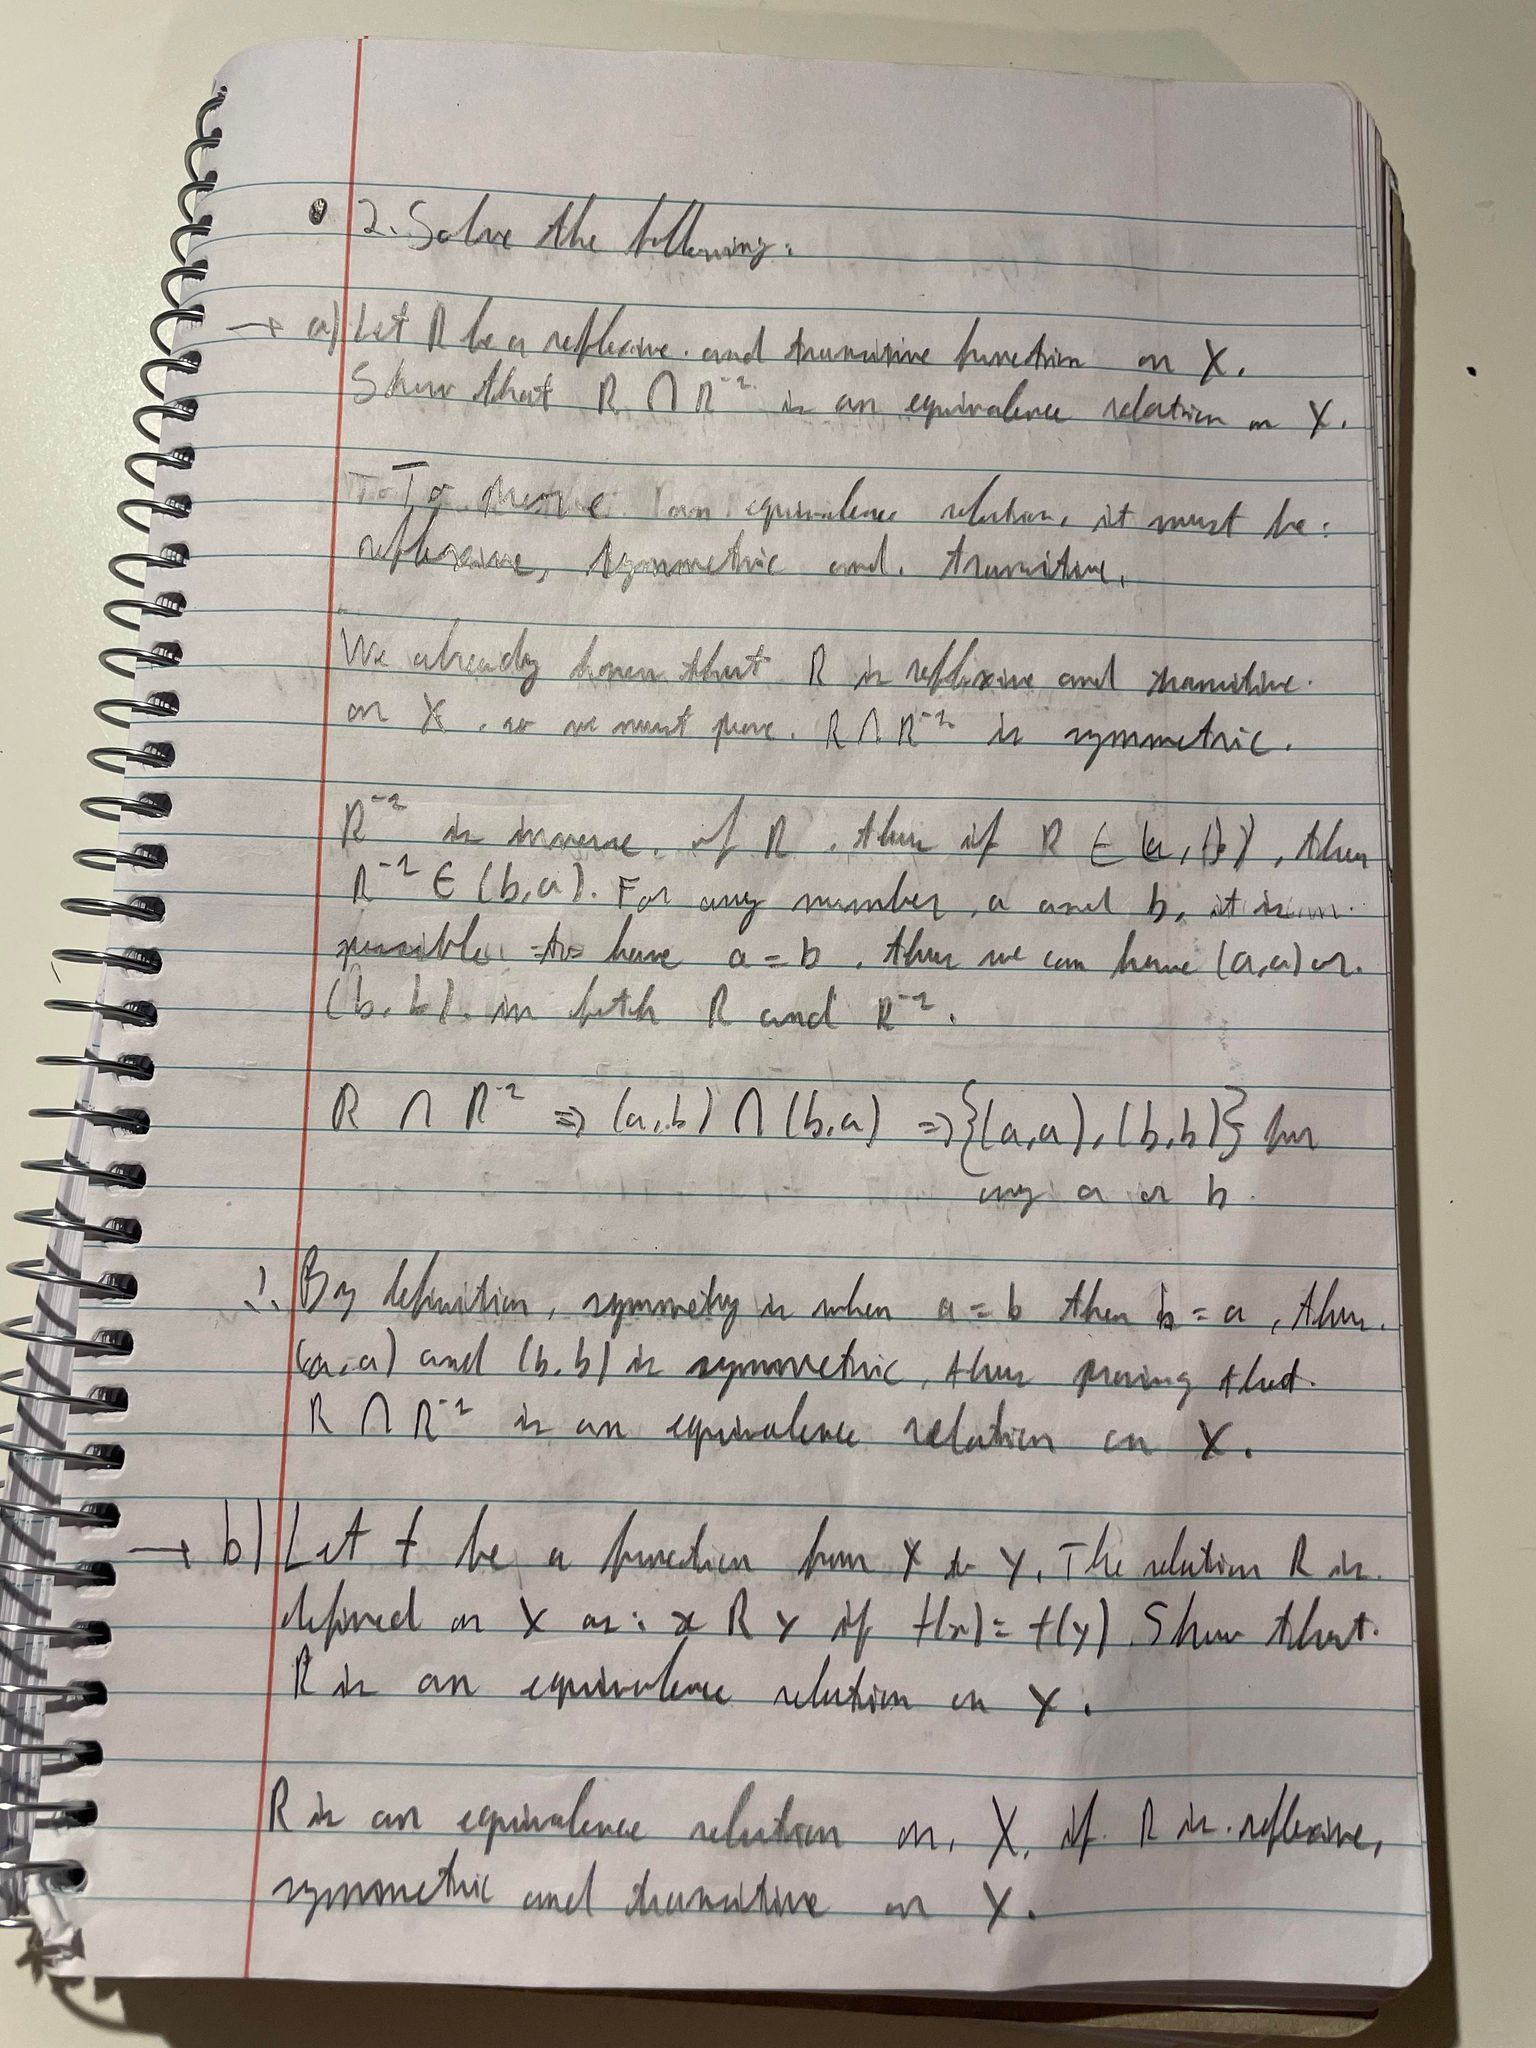 2. Solve the following:
→ a) Let R be a reflexive and transitive function on X.
Show that R ∩ R⁻¹ is an equivalence relation on X.
To prove an equivalence relation, it must be:
reflexive, symmetric and transitive.
We already known that R is reflexive and transitive
on X, so we must prove R ∩ R⁻¹ is symmetric.
R⁻¹ is inverse of R, thus if R ∈ (a, b), then
R⁻¹ ∈ (b,a). For any number, a and b, it is
possible to have a = b, thus we can have (a,a) or
(b,b) in both R and R⁻¹.
R ∩ R⁻¹ ⇒ (a,b) ∩ (b,a) ⇒ {(a,a), (b,b)} for
any a or b
∴ By definition, symmetry is when a = b then b = a, thus
(a,a) and (b,b) is symmetric, thus proving that
R ∩ R⁻¹ is an equivalence relation on X.
→ b) Let f be a function from X to Y. The relation R is
defined on X as: x R y if f(x) = f(y). Show that
R is an equivalence relation on X.
R is an equivalence relation on X, if R is reflexive,
symmetric and transitive on X.